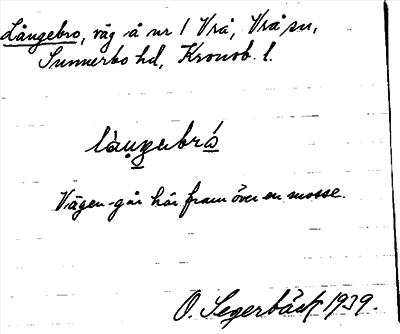 Långebro, väg å nr 1 Vrå, Vrå sn,
Sunnerbo hd, Kronob. l.
làŋgebró
Vägen går här fram över en mosse.
O. Segerbäck 1939.